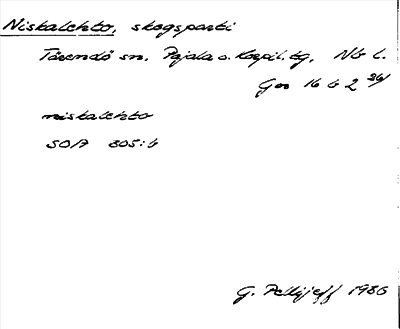 Niskalehto, skogsparti
Tärendö sn. Pajala o. Korpil. tg, Nb l.
Gvr 16 b 2
niskalehto
SOA 805:b
G. Pellijeff 1986